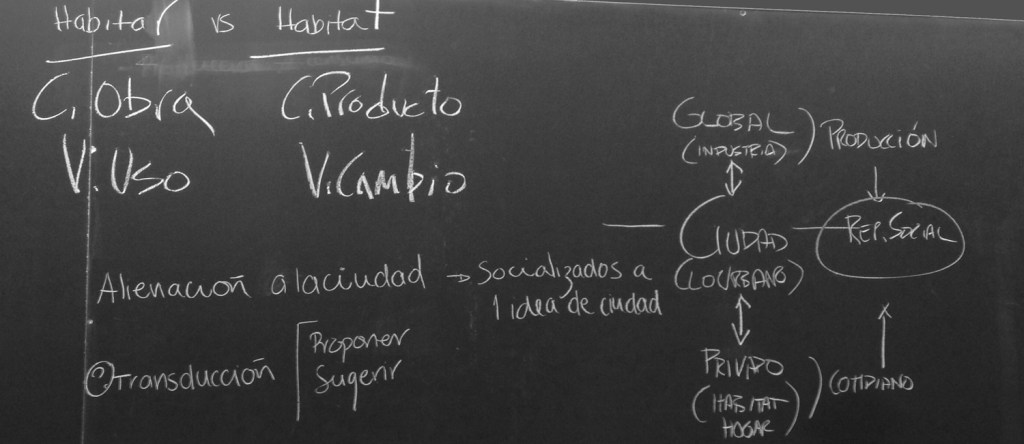 Habitar vs Habitat
C. Obra C. Producto
V. Uso V. Cambio
Alienación a la ciudad → Socializados a
1 idea de ciudad
Transducción
Proponer
Sugerir
GLOBAL
(INDUSTRIA)
PRODUCCIÓN
CIUDAD
(LO URBANO)
REP. SOCIAL
PRIVADO
(HABITAT
HOGAR)
COTIDIANO